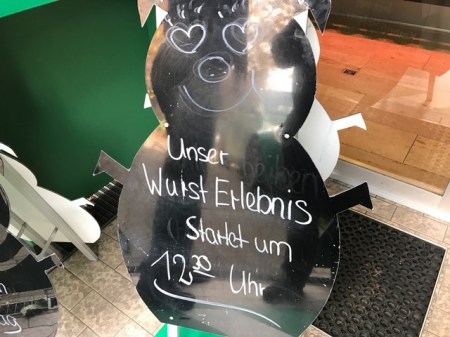 Unser
Wurst Erlebnis
Startet um
12³⁰ Uhr